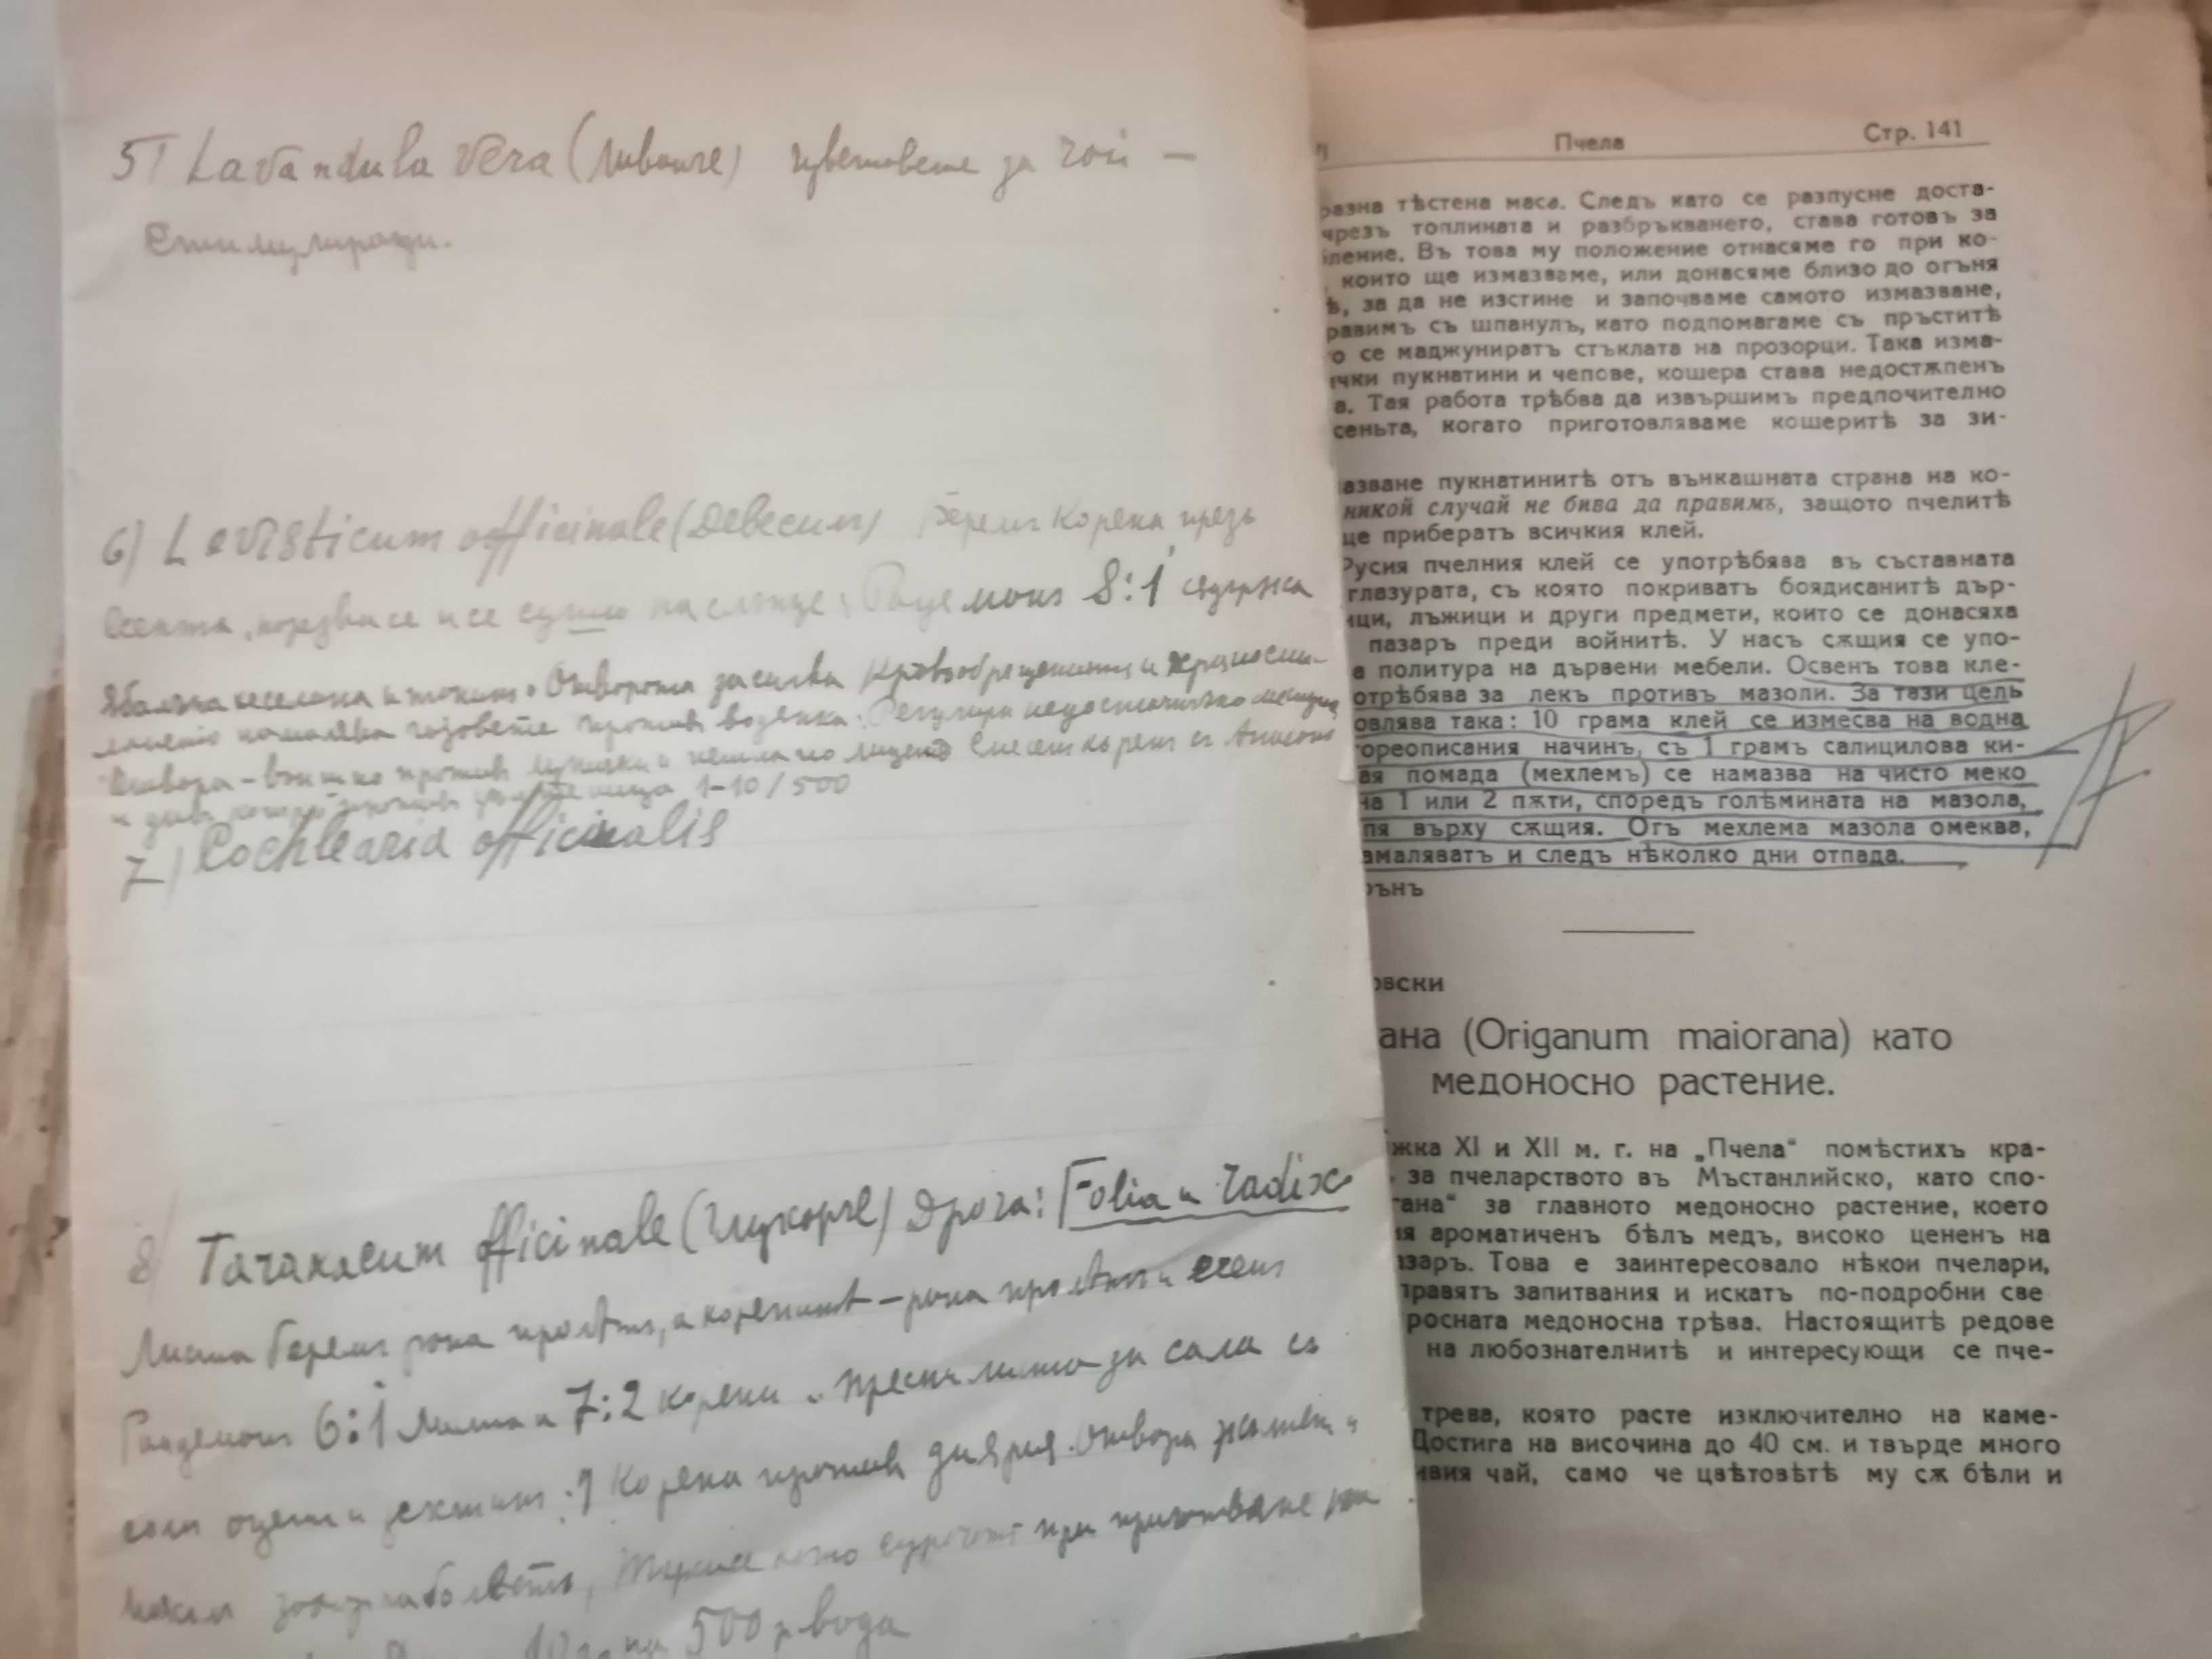 5) Lavandula vera (Ливанче) цветовете за чай —
Стимулиращи.
6) Levisticum officinale (Девесил) Берем корена презъ
есента, нарязва се и се суши на слънце, Рандемонъ 8:1 съдържа
ябълчна киселина и танинъ. Отварата засилва кръвообращението и
намалява газовете против водянка.
Отвара – външно против лунички и петна по лицето
1–10/500
7) Cochlearia officinalis
8) Taraxacum officinale (Глухарче) Дрога: Folia и radix
Листа берем рана пролѣть, а коренитѣ – рана пролѣть и есень
Рандемонъ 6:1 листа и 7:2 корени. Пресни листа за сала съ
соль оцетъ и зехтинъ. Корена против диария. Отвара
при
10 гр на 500 гр вода
Пчела Стр. 141
разна тѣстена маса. Следъ като се разпусне доста-
чрезъ топлината и разбъркването, става готовъ за
ление. Въ това му положение отнасяме го при ко-
които ще измазваме, или донасяме близо до огъня
ѣ, за да не изстине и започваме самото измазване,
равимъ съ шпанулъ, като подпомагаме съ пръститѣ
о се маджуниратъ стъклата на прозорци. Така изма-
ички пукнатини и чепове, кошера става недостѫпенъ
а. Тая работа трѣбва да извършимъ предпочително
сеньта, когато приготовляваме кошеритѣ за зи-
азване пукнатинитѣ отъ вънкашната страна на ко-
никой случай не бива да правимъ, защото пчелитѣ
ще прибератъ всичкия клей.
Русия пчелния клей се употрѣбява въ съставната
глазурата, съ която покриватъ боядисанитѣ дър-
ици, лъжици и други предмети, които се донасяха
пазаръ преди войнитѣ. У насъ сѫщия се упо-
а политура на дървени мебели. Освенъ това кле-
отрѣбява за лекъ противъ мазоли. За тази цель
овлява така: 10 грама клей се измесва на водна
ореописания начинъ, съ 1 грамъ салицилова ки-
ая помада (мехлемъ) се намазва на чисто меко
на 1 или 2 пѫти, споредъ голѣмината на мазола,
пя върху сѫщия. Отъ мехлема мазола омеква,
амаляватъ и следъ нѣколко дни отпада.
рънъ
овски
ана (Origanum maiorana) като
медоносно растение.
жка XI и XII м. г. на „Пчела“ помѣстихъ кра-
за пчеларството въ Мъстанлийско, като спо-
гана“ за главното медоносно растение, което
ия ароматиченъ бѣлъ медъ, високо цененъ на
азаръ. Това е заинтересовало нѣкои пчелари,
правятъ запитвания и искатъ по-подробни све
росната медоносна трѣва. Настоящитѣ редове
на любознателнитѣ и интересующи се пче-
трева, която расте изключително на каме-
Достига на височина до 40 см. и твърде много
ивия чай, само че цвѣтовѣтѣ му сѫ бѣли и